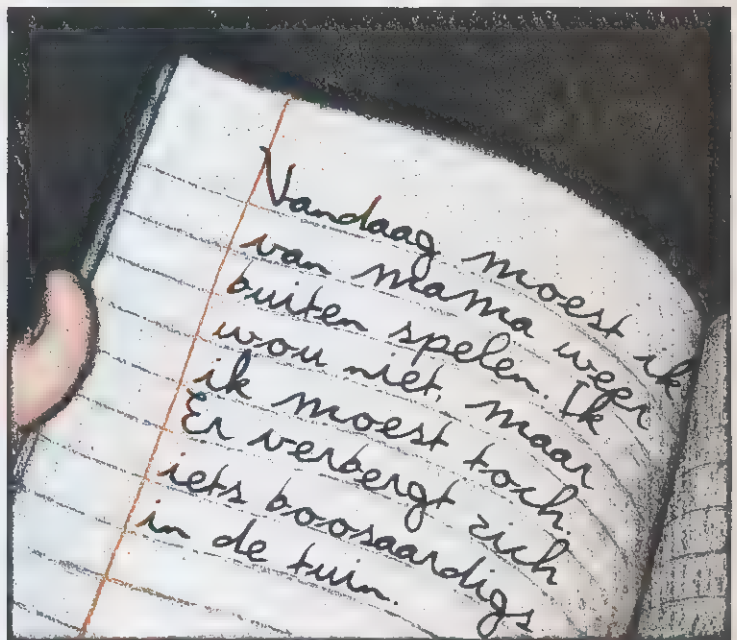 Vandaag moest ik
van mama weer
buiten spelen. Ik
wou niet, maar
ik moest toch.
Er verbergt zich
iets boosaardigs
in de tuin.